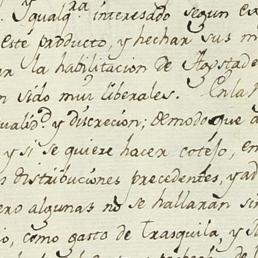 Ygualq.ra interesado segun ca
Este producto, y hechar sus m
la habilitacion de Apostade
n sido muy liberales. Enla
ualid.d y discrecion; demodo que a
y si se quiere hacer cotejo, en
s distribuciones precedentes, y ad
ero algunas no se hallarán sin
io, como gasto de trasquila, y